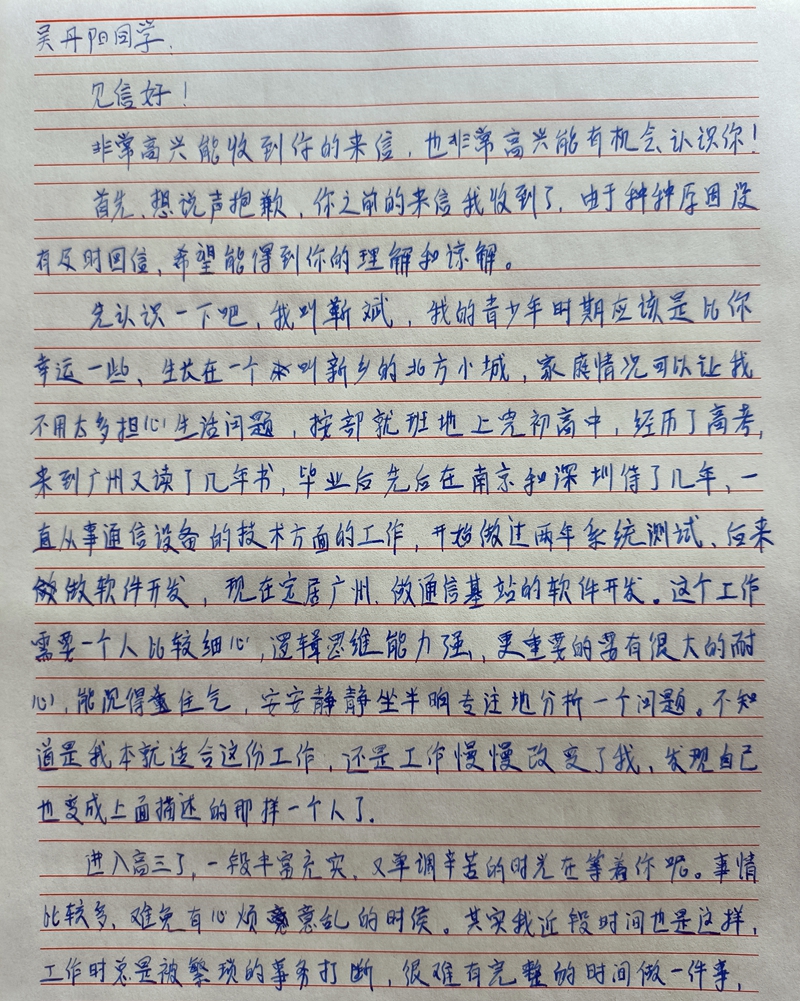 吴丹阳同学.
见信好！
非常高兴能收到你的来信，也非常高兴能有机会认识你！
首先、想说声抱歉，你之前的来信我收到了，由于种种原因没
有及时回信，希望能得到你的理解和谅解。
先认识一下吧，我叫靳斌，我的青少年时期应该是比你
幸运一些、生长在一个叫新乡的北方小城，家庭情况可以让我
不用太多担心生活问题，按部就班地上完初高中，经历了高考，
来到广州又读了几年书，毕业后先后在南京和深圳待了几年，一
直从事通信设备的技术方面的工作，开始做过两年系统测试、后来
做软件开发，现在定居广州、做通信基站的软件开发。这个工作
需要一个人比较细心，逻辑思维能力强，更重要的需有很大的耐
心，能沉得住气，安安静静坐半晌专注地分析一个问题。不知
道是我本就适合这份工作，还是工作慢慢改变了我，发现自己
也变成上面描述的那样一个人了.
进入高三了，一段丰富充实、又单调辛苦的时光在等着你呢。事情
比较多，难免有心烦意乱的时侯。其实我近段时间也是这样，
工作时总是被繁琐的事务打断，很难有完整的时间做一件事，